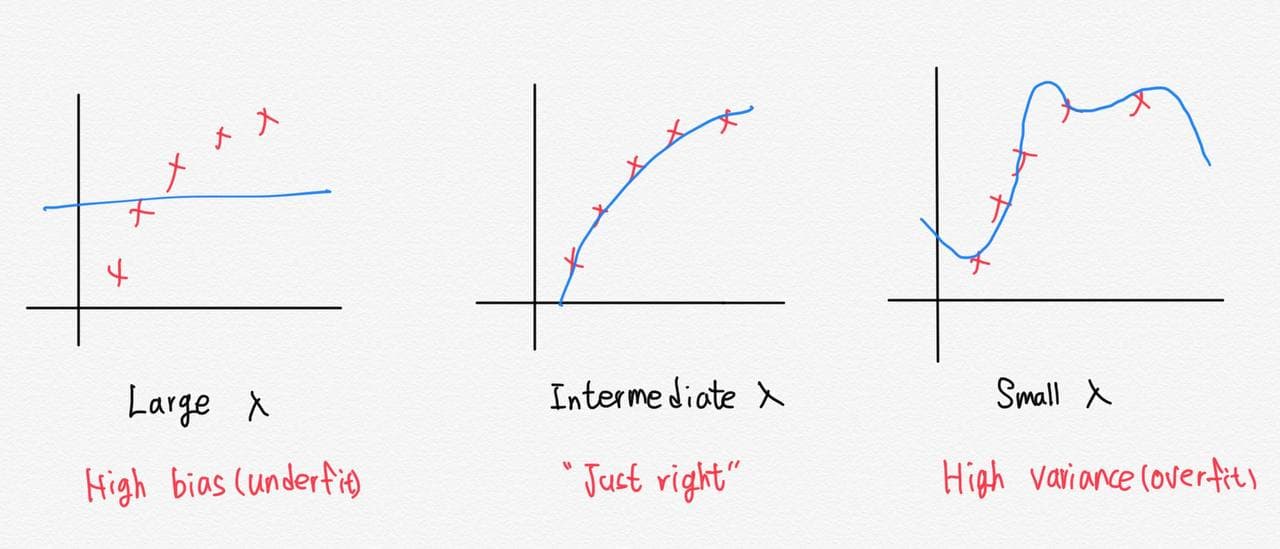 Large λ
High bias (underfit)
Intermediate λ
"Just right"
Small λ
High variance (overfit)